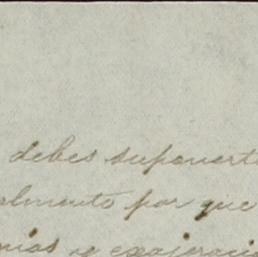 debes suponerte
almente por que
nias y exajeracio